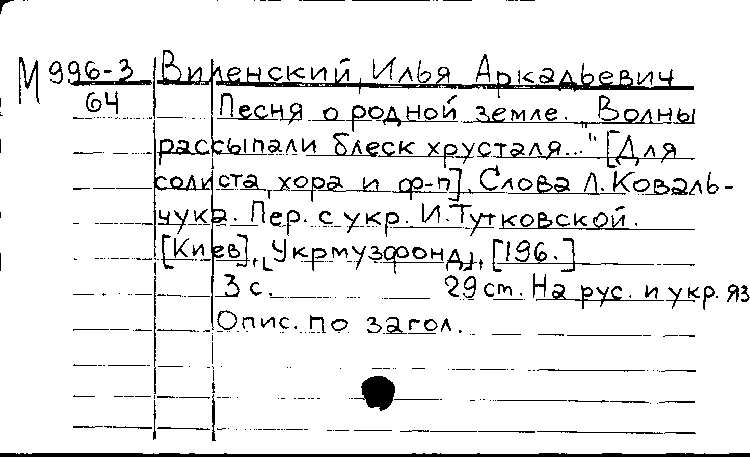 М 996-3 Виленский, Илья Аркадьевич
64 Песня о родной земле. „Волны
рассыпали блеск хрусталя..." [Для
солиста, хора и ф-п]. Слова Л. Коваль-
чука. Пер. с укр. И. Тутковской.
[Киев], [Укрмузфонд], [196.]
3 с. 29 ст. На рус. и укр. яз
Опис. по загол.